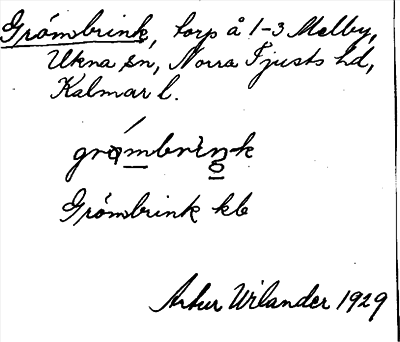 Grömbrink, torp å 1-3 Melby,
Ukna sn, Norra Tjusts hd,
Kalmar l.
Grömbrink kb
Artur Wilander 1929